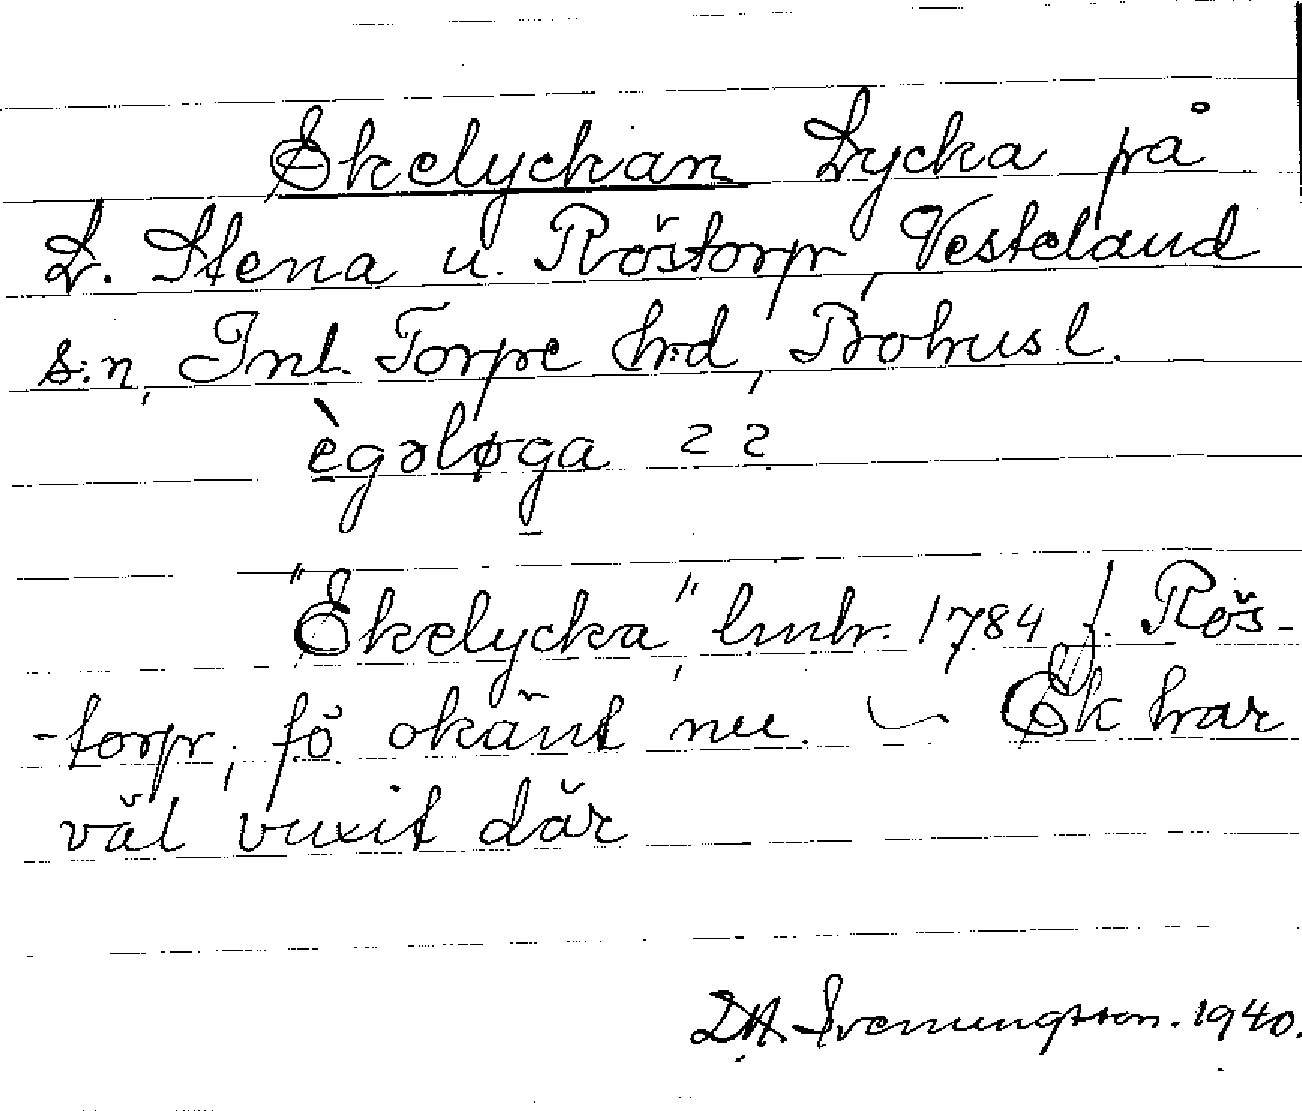 Ekelyckan Lycka på
L. Stena u. Röstorp, Vesteland
s:n, Inl. Torpe hrd, Bohusl.
ègəløga 22
"Ekelycka", lmhr. 1784 f. Rös-
-torp, fö okänt nu. ~ Ek har
väl vuxit där
DA Svenningsson. 1940.